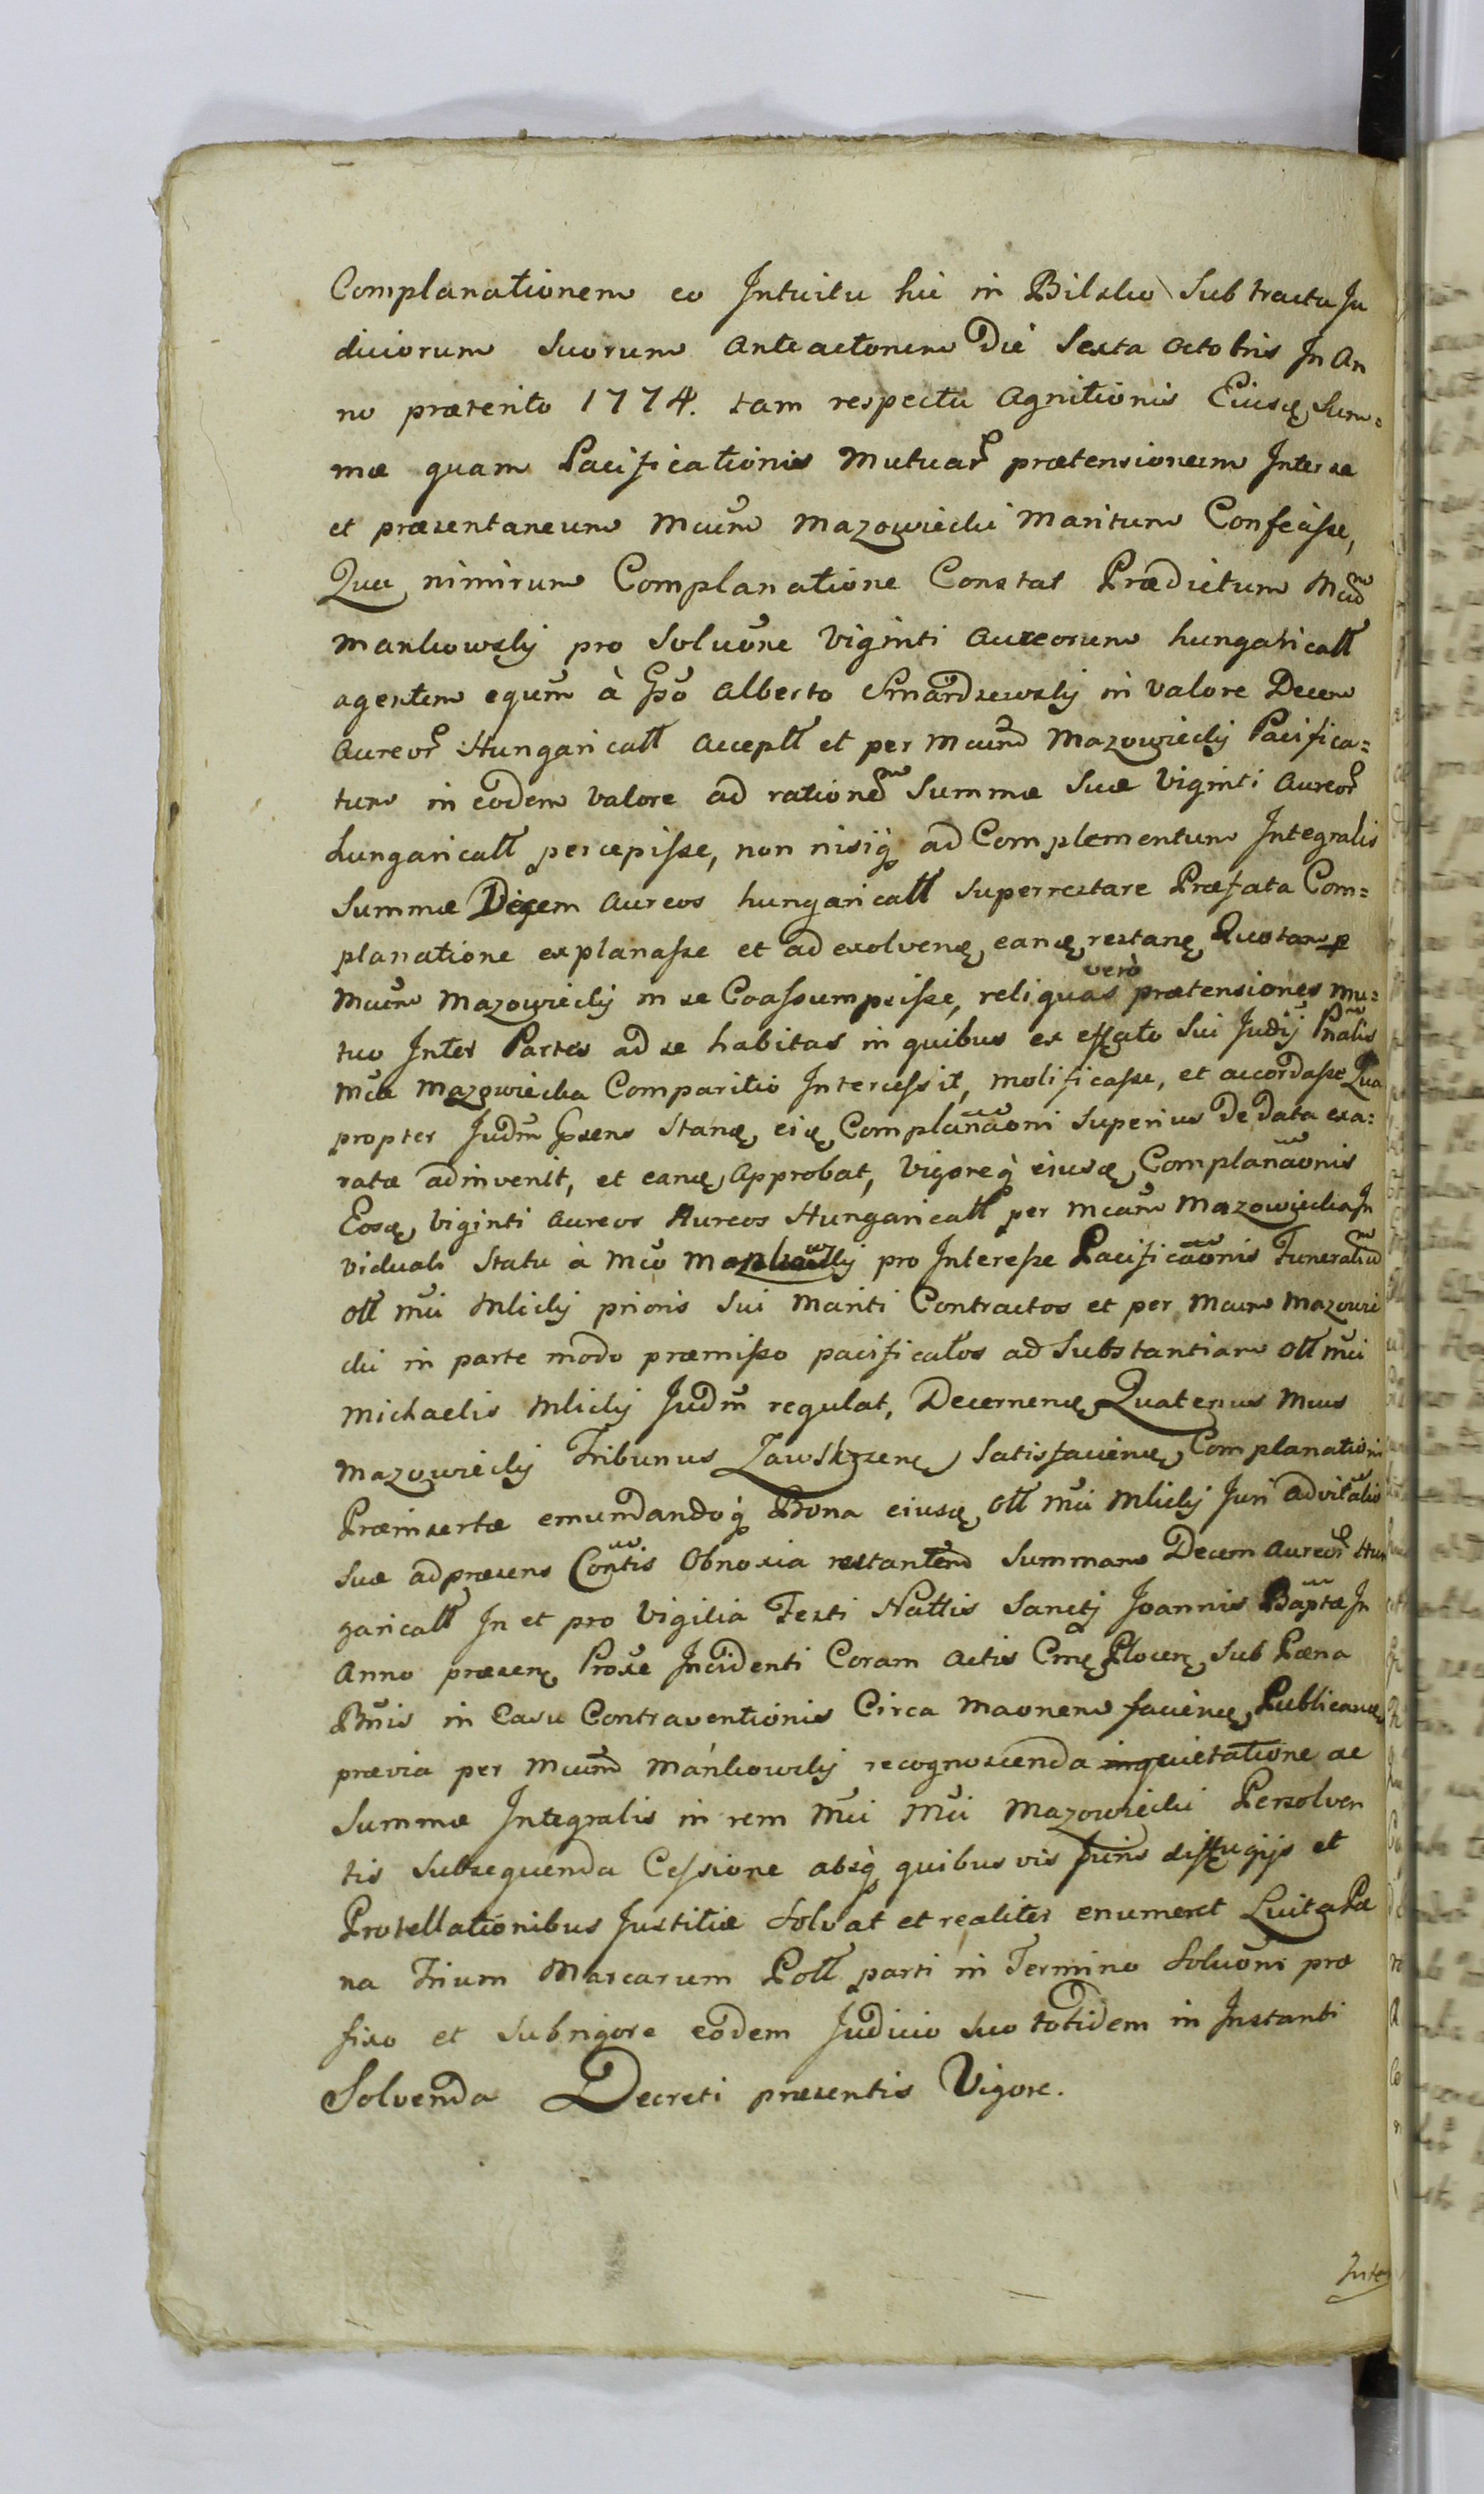 Complanationem eo Intuitu hic in Bilsko Sub tractu Ju
diciorum Suorum Anteactorum Die Sexta Octobris In An
no præterito 1774. tam respectu Agnitionis Eiusꝗ Sum=
mæ quam Pacificationis Mutuar̃ prætensionum Inter se
et præsentaneum Mcum̃ Mazowiecki Maritum Confecisse,
Qua nimirum Complanatione Constat Prædictum Mcum̃
Mankowskij pro Soluõne Viginti Aureorum hungaricall
agentem equm̃ à Gso Alberto Smardzewskij in Valore Decem
Aureor̃ Hungaricall Accepll et per Mcum̃ Mazowieckij Pacifica=
tum in eodem Valore ad rationem Summæ Suæ Viginti Aureor̃
hungaricall percepisse, non nisiq́ ad Complementum Integralis
Summæ Decem Aureos hungaricall Superrestare Præfata Com=
planatione explanasse et ad exolvenꝗ eanꝗ restanꝗ Quotam p
Mcum̃ Mazowieckij in se Coassumpsisse, reliquas verò prætensiones mu=
tuo Inter Partes ad se habitas in quibus ex effato Sui Judij Pñalis
Mcæ Mazowiecka Comparitio Intercessit, molificasse, et accordasse Qua
propter Judm̃ Præsens Stanꝗ eiꝗ Complanãoni Superius De data exa=
ratæ adinvenit, et eanꝗ Approbat, Vigoreq́ eiusꝗ Complanãonis
Eosꝗ Viginti Aureos Aureos Hungaricall per Mcam̃ Mazowiecka In
viduali Statu à Mco Mankowskij pro Interesse Pacificãonis Funeralium
Oll Mci Mlickij prioris Sui Mariti Contractos et per Mcum Mazowie
cki in parte modo præmisso pacificatos ad Substantiam Oll Mci
Michaelis Mlickij Judm̃ regulat, Decernenꝗ Quatenus Mcus
Mazowieckij Tribunus Zawskrzenꝗ Satisfacienꝗ Complanationi
Præinsertæ emundandoq́ Bona eiusꝗ Oll Mci Mlickij Juri advitalis
Suæ ad præsens Contis Obnoxia restantem Summam Decem Aureor̃ Hun
garicall In et pro Vigilia Festi Nattis Sanctj Joannis Baptæ In
Anno præsenꝗ Proxe Incidenti Coram Actis Cmꝗ Plocenꝗ Sub Pæna
Bñis in Casu Contraventionis Circa Maonem facienꝗ Publicanꝗ
prævia per Mcum̃ Mánkowskij recognoscenda quietatione ac
Summæ Integralis in rem Mci Mci Mazowiecki Persolven
tis Subsequenda Cessione absq́ quibus vis Juris diffugijs et
Protellationibus Justitiæ Solvat et realiter enumeret Luita Pæ
na Trium Marcarum Poll parti in Termino Soluõni præ
fixo et Subrigore eodem Judicio Suo totidem in Instanti
Solvenda Decreti præsentis Vigore.
Inter